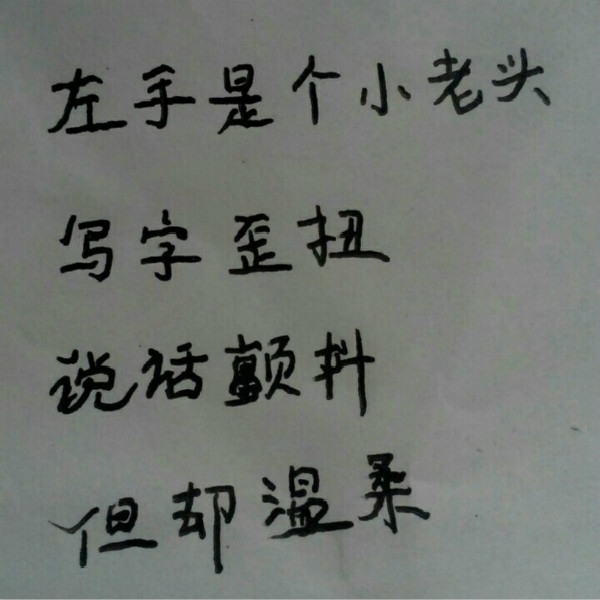 左手是个小老头
写字歪扭
说话颤抖
但却温柔